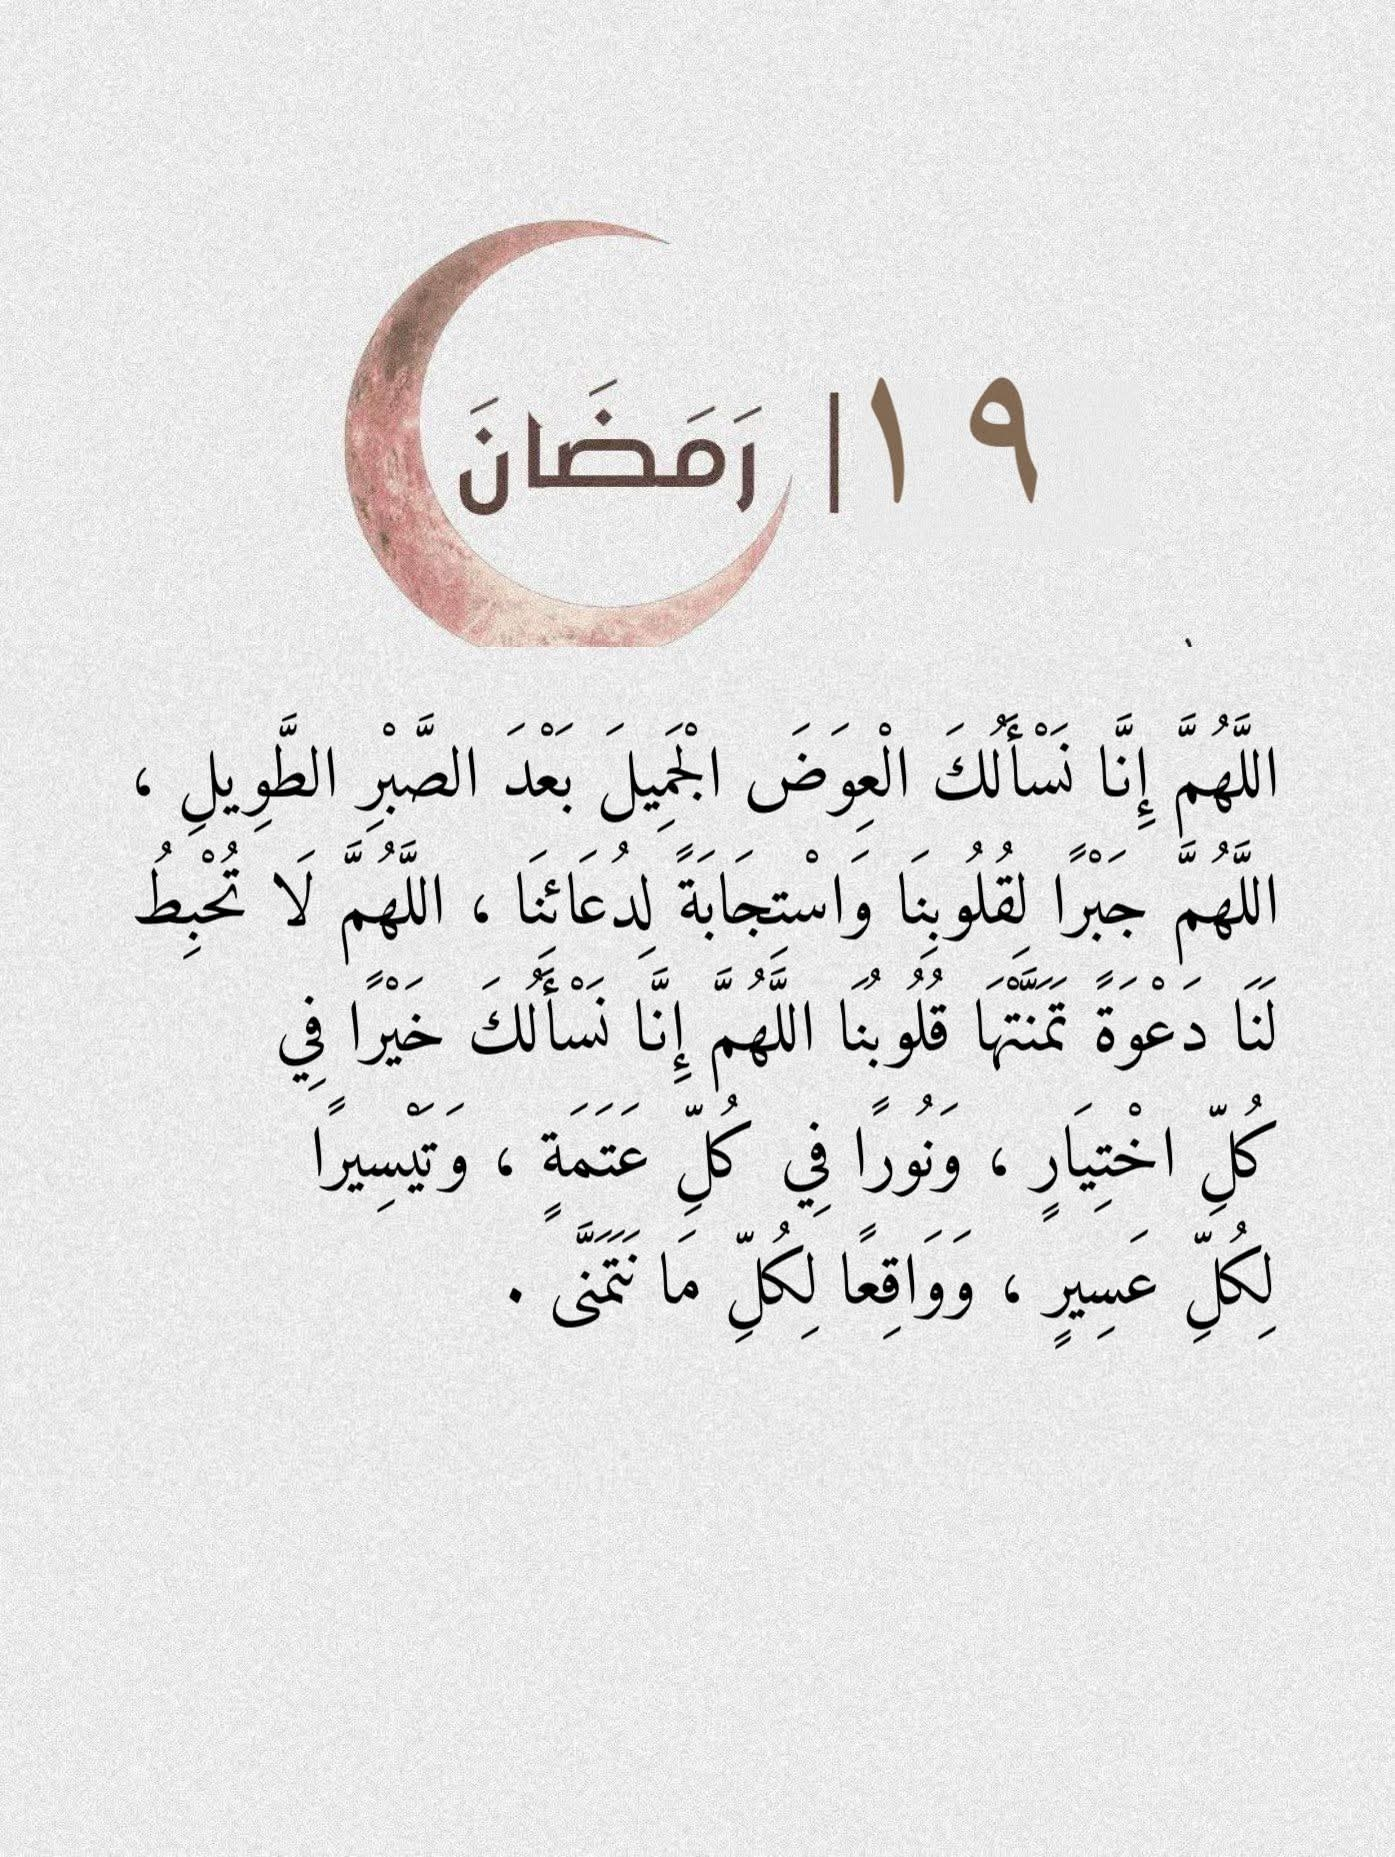 ١٩ | رَمَضَانَ
اللَّهُمَّ إِنَّا نَسْأَلُكَ الْعِوَضَ الْجَمِيلَ بَعْدَ الصَّبْرِ الطَّوِيلِ ،
اللَّهُمَّ جَبْرًا لِقُلُوبِنَا وَاسْتِجَابَةً لِدُعَائِنَا ، اللَّهُمَّ لَا تُحْبِطُ
لَنَا دَعْوَةً تَمَنَّتْهَا قُلُوبُنَا اللَّهُمَّ إِنَّا نَسْأَلُكَ خَيْرًا فِي
كُلِّ اخْتِيَارٍ ، وَنُورًا فِي كُلِّ عَتَمَةٍ ، وَتَيْسِيرًا
لِكُلِّ عَسِيرٍ ، وَوَاقِعًا لِكُلِّ مَا نَتَمَنَّى .